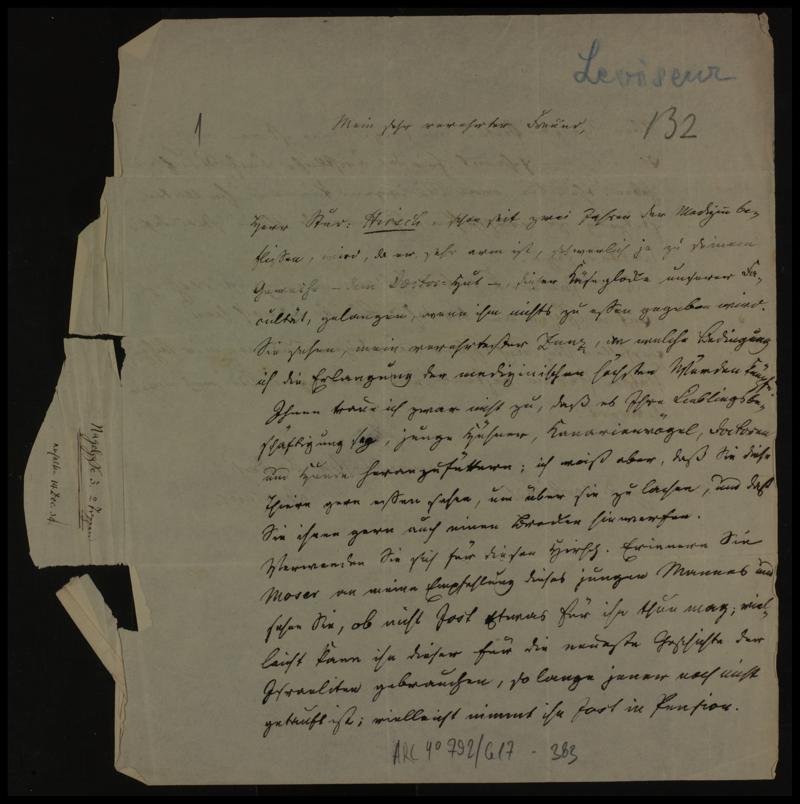 Leviseur
1
132
Mein sehr verehrter Freund,
Herr Stud: Hirsch, schon seit zwei Jahren der Medizin be-
flissen, wird, da er sehr arm ist, schwerlich je zu seinem
Geweihe – dem Doctor-Hut –, dieser Käseglocke unserer Fa-
cultät, gelangen, wenn ihm nichts zu essen gegeben wird.
Sie sehen, mein verehrtester Zunz, an welche Bedingung
ich die Erlangung der medizinischen höchsten Würden knüpfe.
Ihnen traue ich zwar nicht zu, daß es Ihre Lieblingsbe-
schäftigung sey, junge Hühner, Kanarienvögel, Doctoren
und Hunde heranzufüttern; ich weiß aber, daß Sie diese
Thiere gern essen sehen, um über sie zu lachen, und daß
Sie ihnen gern auch einen Brocken hinwerfen.
Verwenden Sie sich für diesen Hirsch. Erinnern Sie
Moser an meine Empfehlung dieses jungen Mannes und
sehen Sie, ob nicht Jost etwas für ihn thun mag; viel-
leicht kann ihn dieser für die neueste Geschichte der
Israeliten gebrauchen, so lange jener noch nicht
getauft ist; vielleicht nimmt ihn Jost in Pension.
ARC 4° 792/G17 - 383